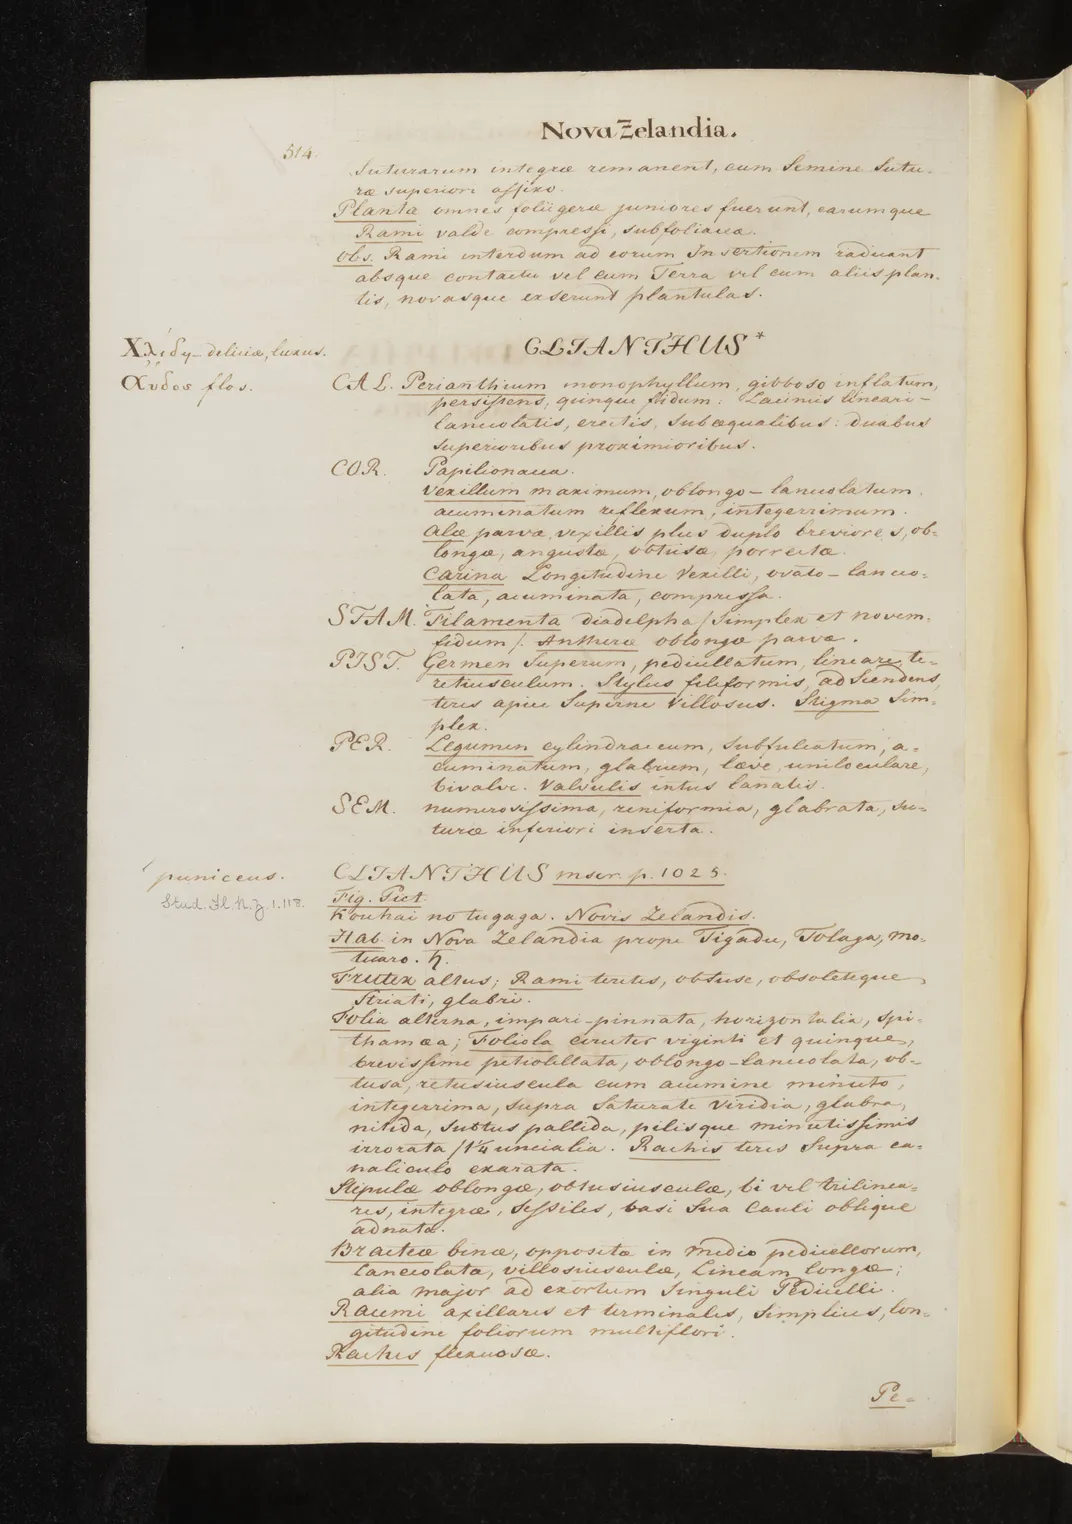 Nova Zelandia.
514.
Suturarum integræ remanent, cum Semine Sutu-
ræ superiori affixo.
Plantæ omnes foliigeræ juniores fuerunt, earumque
Rami valde compressi, subfoliacei.
Obs. Rami interdum ad eorum Insertionem radicant
absque contactu vel cum Terra vel cum aliis plan-
tis, novasque exserunt plantulas.
CLIANTHUS*
Χλιδη deliciæ, luxus.
ανθος flos.
CAL. Perianthium monophyllum, gibboso inflatum,
persistens, quinque fidum: Laciniis lineari-
lanceolatis, erectis, subæqualibus: duabus
superioribus proximioribus.
COR. Papilionacea.
Vexillum maximum, oblongo-lanceolatum
acuminatum reflexum, integerrimum.
Alæ parvæ, vexillis plus duplo breviores, ob-
longæ, angustæ, obtusæ, porrectæ.
Carina Longitudine Vexilli, ovato-lanceo-
lata, acuminata, compressa.
STAM. Filamenta diadelpha /Simplex et novem-
fidum/. Antheræ oblongæ parvæ.
PIST. Germen Superum, pedicellatum, lineare, te-
retiusculum. Stylus filiformis, adscendens,
teres apice Superne Villosus. Stigma Sim-
plex.
PER. Legumen cylindraceum, subfulcatum, a-
cuminatum, glabrum, læve, uniloculare,
bivalve. Valvulis intus lanatis.
SEM. numerosissima, reniformia, glabrata, Su-
turæ inferiori inserta.
puniceus.
Stud. Fl. N. Z. 1.118.
CLIANTHUS mscr. p. 1025.
Fig. Pict.
Kouhai no tugaga. Novis Zelandis.
Hab. in Nova Zelandia prope Tigadu, Tolaga, mo-
tuaro. ♄.
Frutex altus; Rami teretes, obtuse, obsoleteque
Striati, glabri.
Folia alterna, impari-pinnata, horizontalia, spi-
thamæa; Foliola circiter viginti et quinque,
brevissime petiolellata, oblongo-lanceolata, ob-
tusa, retusiuscula cum acumine minuto,
integerrima, supra Saturate Viridia, glabra,
nitida, subtus pallida, pilisque minutissimis
irrorata /1¼ uncialia. Rachis teres Supra ca-
naliculo exarata.
Stipulæ oblongæ, obtusiusculæ, bi vel trilinea-
res, integræ, sessiles, basi Sua Cauli oblique
adnata.
Bracteæ binæ, oppositæ in medio pedicellorum,
lanceolata, villosiusculæ, Lineam longæ;
alia major ad exortum singuli Pedicelli.
Racemi axillares et terminales, simplices, lon-
gitudine foliorum multiflori.
Raches flexuosæ.
Pe-